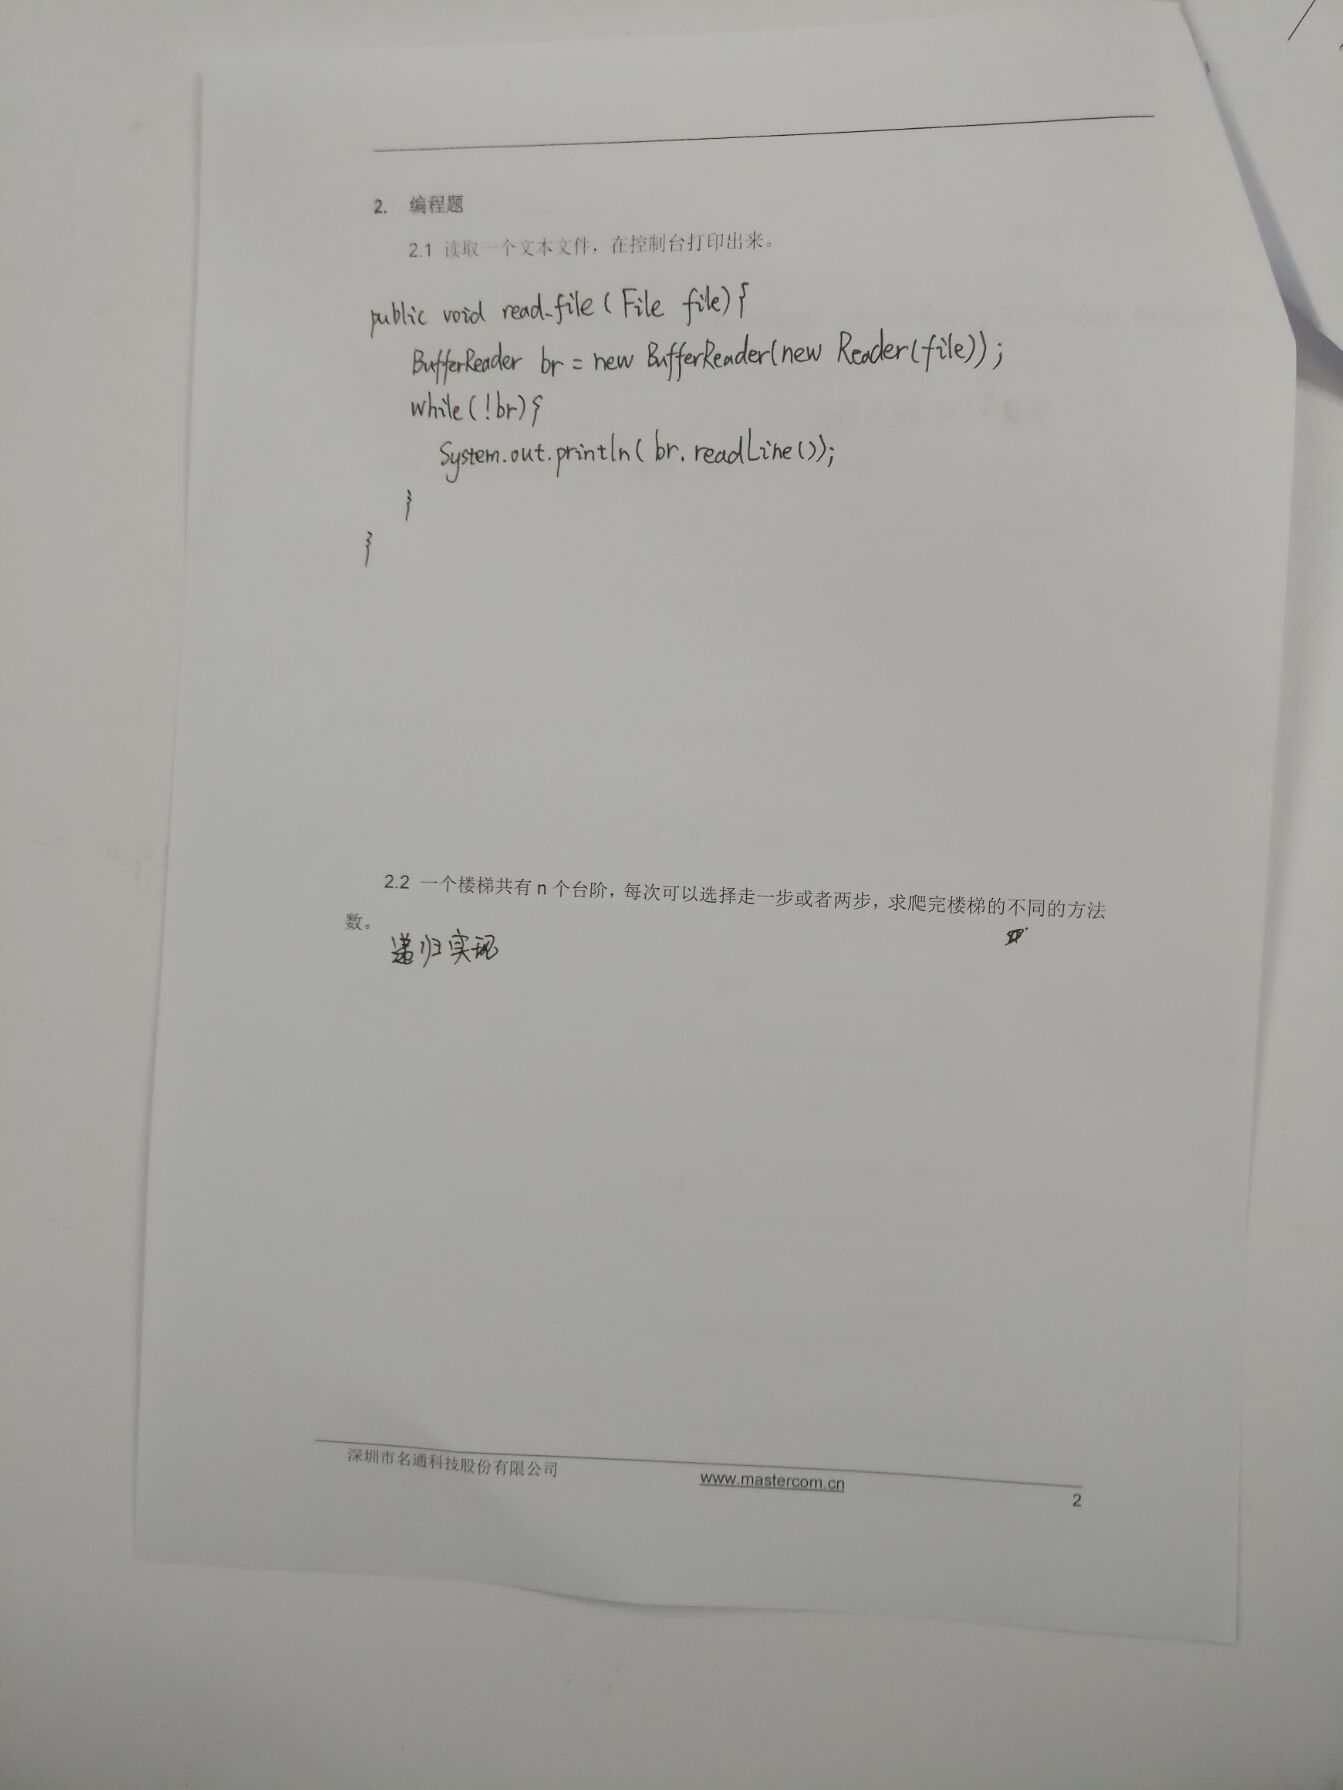 2. 编程题
2.1 读取一个文本文件，在控制台打印出来。
public void read_file(File file){
BufferReader br = new BufferReader(new Reader(file));
while(!br){
System.out.println(br.readLine());
}
}
2.2 一个楼梯共有n个台阶，每次可以选择走一步或者两步，求爬完楼梯的不同的方法
数。
递归实现
深圳市名通科技股份有限公司
www.mastercom.cn
2